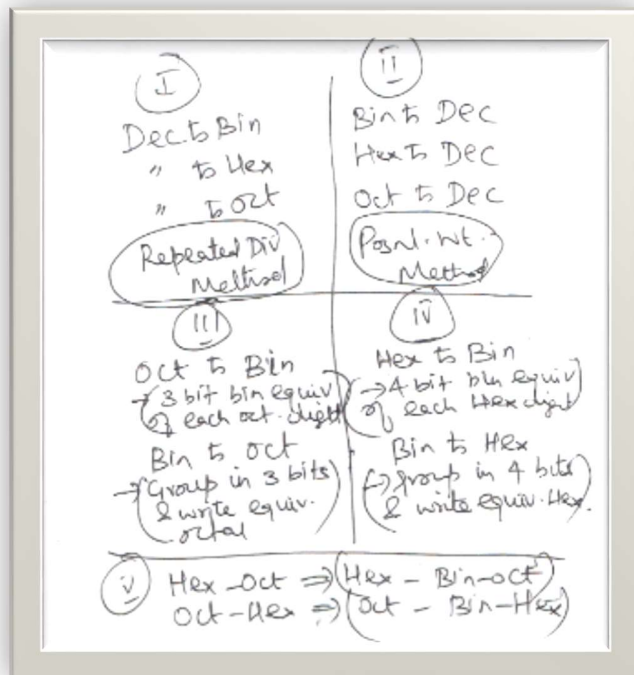 I
Dec. to Bin
" to Hex
" to Oct
Repeated Div
Method
II
Bin to Dec
Hex to Dec
Oct to Dec
Posnl. Wt.
Method
III
Oct to Bin
→ 3 bit bin equiv
of each oct. digit
Bin to Oct
→ Group in 3 bits
& write equiv.
octal
IV
Hex to Bin
→ 4 bit bin equiv
of each Hex digit
Bin to Hex
→ group in 4 bits
& write equiv. Hex.
V
Hex - Oct ⇒ Hex - Bin - Oct
Oct - Hex ⇒ Oct - Bin - Hex